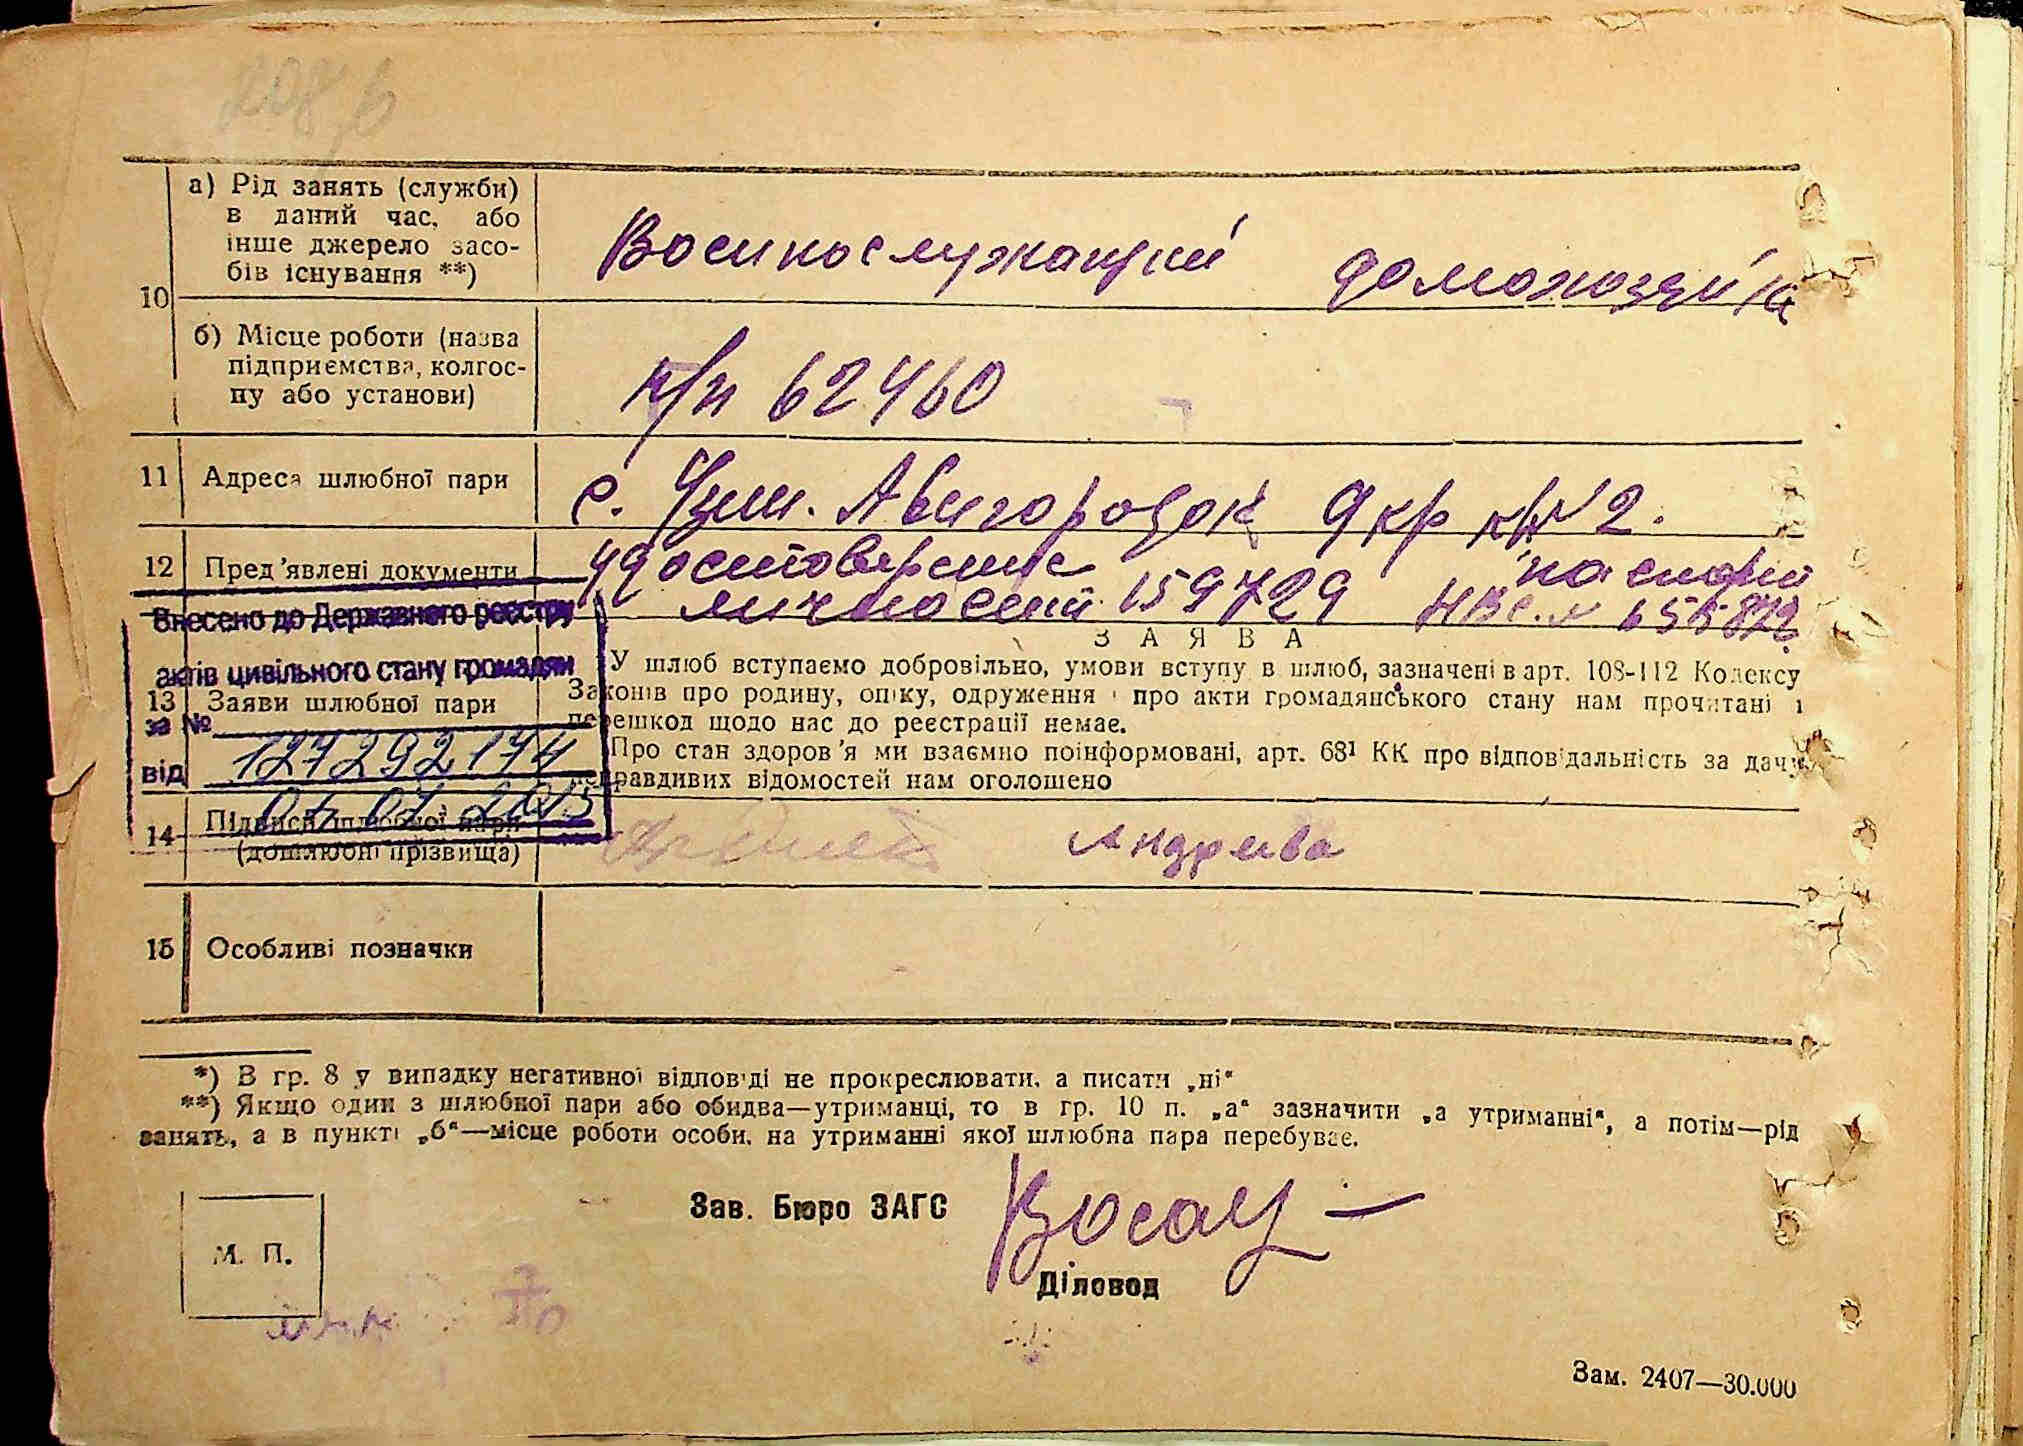 10
а) Рід занять (служби)
в даний час, або
інше джерело засо-
бів існування **)
Военнослужащий домохозяйка
б) Місце роботи (назва
підприємства, колгос-
пу або установи)
п/п 62460
11 Адреса шлюбної пари
с. Узин. Авигородок 9 кр кв 2.
12 Пред'явлені документи
удостоверение паспорт
личности 159729
Внесено до Державного реєстру
актів цивільного стану громадян
за №
127292174
від
ЗАЯВА
13 Заяви шлюбної пари
У шлюб вступаємо добровільно, умови вступу в шлюб, зазначені в арт. 108-112 Кодексу
Законів про родину, опіку, одруження і про акти громадянського стану нам прочитані і
перешкод щодо нас до реєстрації немає.
Про стан здоров'я ми взаємно поінформовані, арт. 68¹ КК про відповідальність за дачу
неправдивих відомостей нам оголошено
14 Підписи шлюбної пари
(дошлюбні прізвища)
Андреева
15 Особливі позначки
*) В гр. 8 у випадку негативної відповіді не прокреслювати, а писати „ні“
**) Якщо один з шлюбної пари або обидва—утриманці, то в гр. 10 п. „а“ зазначити „а утриманні“, а потім—рід
занять, а в пункті „б“—місце роботи особи, на утриманні якої шлюбна пара перебуває.
Зав. Бюро ЗАГС
М. П.
Діловод
Зам. 2407—30.000